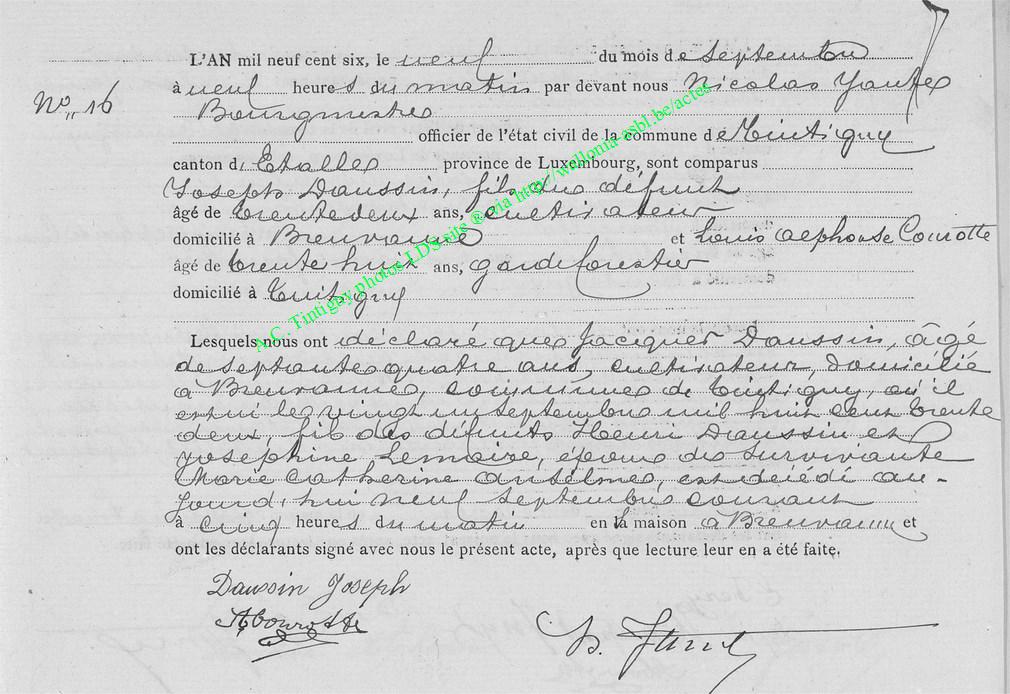 L'AN mil neuf cent six, le neuf du mois de septembre
No 16
à neuf heures du matin par devant nous Nicolas
Bourgmestre
officier de l'état civil de la commune de Tintigny
canton d'Etalle province de Luxembourg, sont comparus
Joseph Daussin, fils du défunt
âgé de trente deux ans, cultivateur
domicilié à Breuvanne et Louis Alphonse Courotte
âgé de trente huit ans, garde forestier
domicilié à Tintigny
Lesquels nous ont déclaré que Jacques Daussin, âgé
de septante quatre ans, cultivateur, domicilié
à Breuvanne, commune de Tintigny, où il
est né le vingt un septembre mil huit cent trente
deux, fils des défunts Henri Daussin et
Josephine Lemaire, époux de survivante
Marie Catherine Anselme, est décédé au-
jourd'hui neuf septembre courant
à cinq heures du matin en la maison à Breuvanne et
ont les déclarants signé avec nous le présent acte, après que lecture leur en a été faite.
Daussin Joseph
A Courotte
A.C. Tintigny photos LDS site @ via http://wallonia-asbl.be/actes